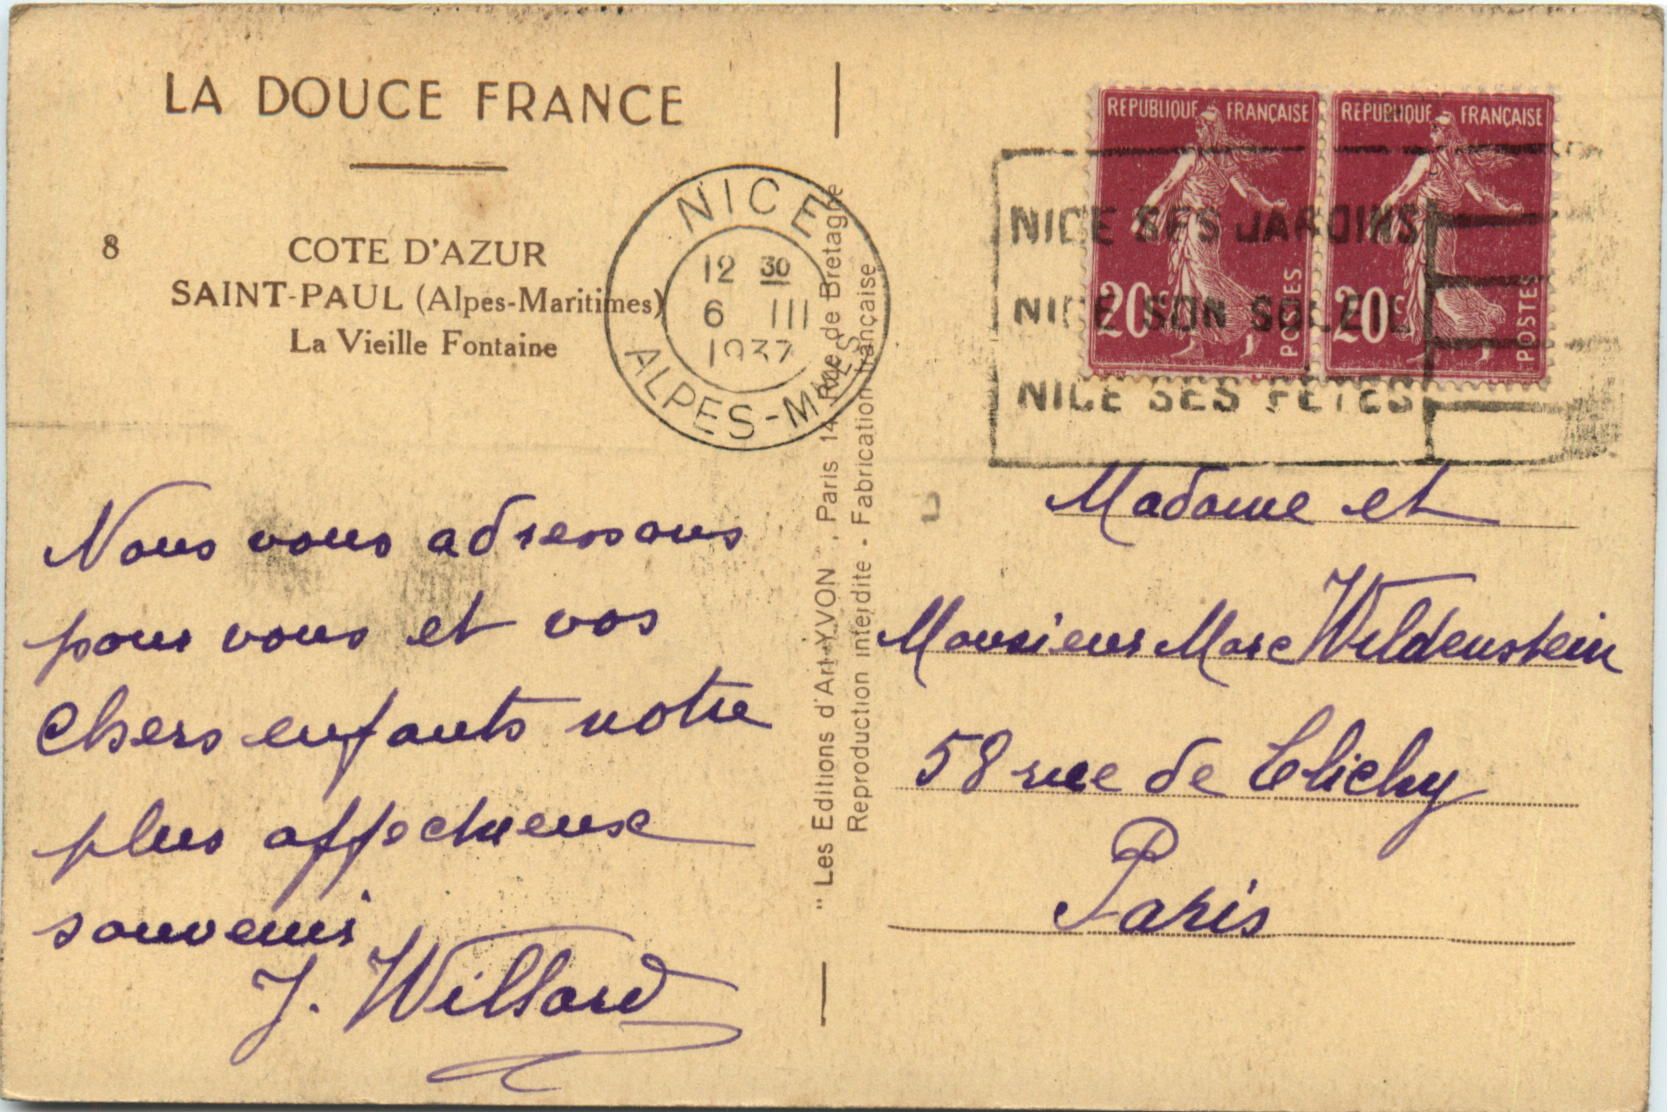 LA DOUCE FRANCE
8
COTE D'AZUR
SAINT-PAUL (Alpes-Maritimes)
La Vieille Fontaine
NICE
12 30
6 III
1937
ALPES-MMES
REPUBLIQUE FRANÇAISE
20c
POSTES
REPUBLIQUE FRANÇAISE
20c
POSTES
NICE SES JARDINS
NICE SON SOLEIL
NICE SES FÊTES
"Les Editions d'Art YVON", Paris 14, Rue de Bretagne
Reproduction interdite - Fabrication française
Nous vous adressons
pour vous et vos
chers enfants notre
plus affectueux
souvenir
J. Willard
Madame et
Monsieur Marc Wildenstein
58 rue de Clichy
Paris